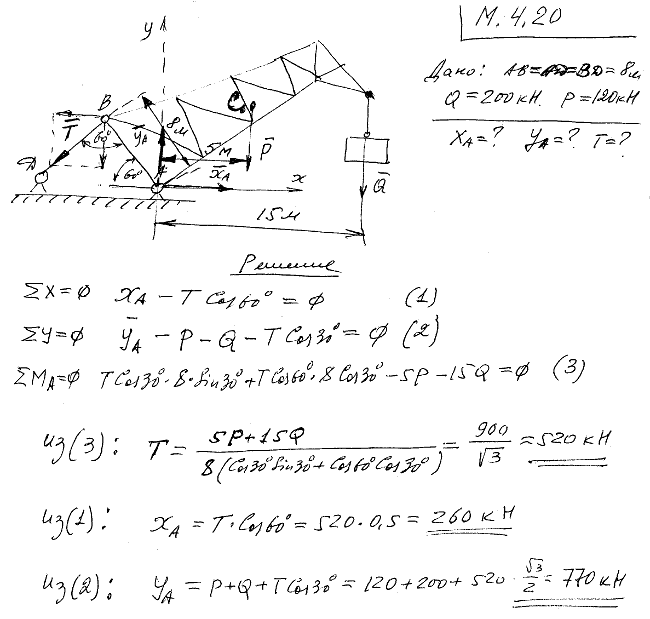 М. 4,20
Дано: AB = BD = 8м
Q = 200кН. P = 120кН
X_A = ? Y_A = ? T = ?
y
B
T̅
60°
D
Y̅_A
8м
60°
A
C
5м
P̅
X̅_A
x
Q̅
15м
Решение
ΣX=0 X_A − T Cos60° = 0 (1)
ΣY=0 Y̅_A − P − Q − T Cos30° = 0 (2)
ΣM_A=0 T Cos30°·8·Sin30° + T Cos60°·8 Cos30° − 5P − 15Q = 0 (3)
из(3): T = (5P+15Q) / (8(Cos30°Sin30° + Cos60°Cos30°)) = 900/√3 = 520 кН
из(1): X_A = T·Cos60° = 520·0,5 = 260 кН
из(2): Y_A = P+Q+T Cos30° = 120+200+520·√3/2 = 770 кН